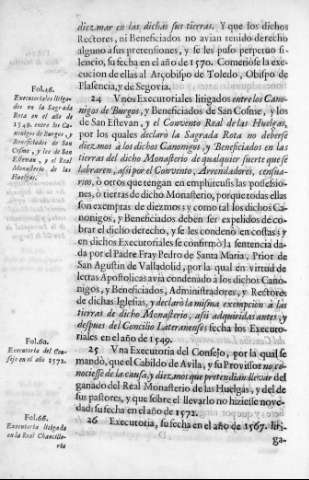 diezmar en las dichas sus tierras. Y que los dichos
Rectores, ni Beneficiados no avian tenido derecho
alguno a sus pretensiones, y se les puso perpetuo si-
lencio, su fecha en el año de 1570. Cometiose la exe-
cucion de ellas al Arçobispo de Toledo, Obispo de
Plasencia, y de Segovia.
Fol. 46.
Executoriales litiga-
dos en la Sagrada
Rota en el año de
1549. entre los Ca-
nonigos de Burgos, y
Beneficiados de San
Cosme, y los de San
Estevan, y el Real
Monasterio de las
Huelgas.
24 Vnos Executoriales litigados entre los Cano-
nigos de Burgos, y Beneficiados de San Cosme, y los
de San Estevan, y el Convento Real de las Huelgas,
por los quales declarò la Sagrada Rota no deberse
diezmos à los dichos Canonigos, y Beneficiados en las
tierras del dicho Monasterio de qualquier suerte que se
labraren, assi por el Convento, Arrendadores, censua-
rio, ò otros que tengan en emphiteusis las possessio-
nes, ò tierras de dicho Monasterio, porque todas ellas
son exemptas de diezmos y como tal los dichos Ca-
nonigos, y Beneficiados deben ser expelidos de co-
brar el dicho derecho, y se les condenò en costas: y
en dicho Executoriales se confirmò la sentencia da-
da por el Padre Fray Pedro de Santa Maria, Prior de
San Agustin de Valladolid, por la qual en virtud de
letras Apostolicas avia condenado à los dichos Cano-
nigos, y Beneficiados, Administradores, y Rectores
de dichas Iglesias, y declarò la misma exempcion à las
tierras de dicho Monasterio, assi adquiridas antes, y
despues del Concilio Lateranense: fecha los Executo-
riales en el año de 1549.
Fol. 60.
Executoria del Con-
sejo en el año 1572.
25 Vna Executoria del Consejo, por la qual se
mandò, que el Cabildo de Avila, y su Provisor no co-
nociesse de la causa, y diezmos que pretendian llevar del
ganado del Real Monasterio de las Huelgas, y del de
sus pastores, y que sobre el llevarlo no hiziesse nove-
dad: su fecha en el año de 1572.
Fol. 66.
Executoria litigada
en la Real Chancille-
ria
26 Executoria, su fecha en el año de 1567. liti-
ga-